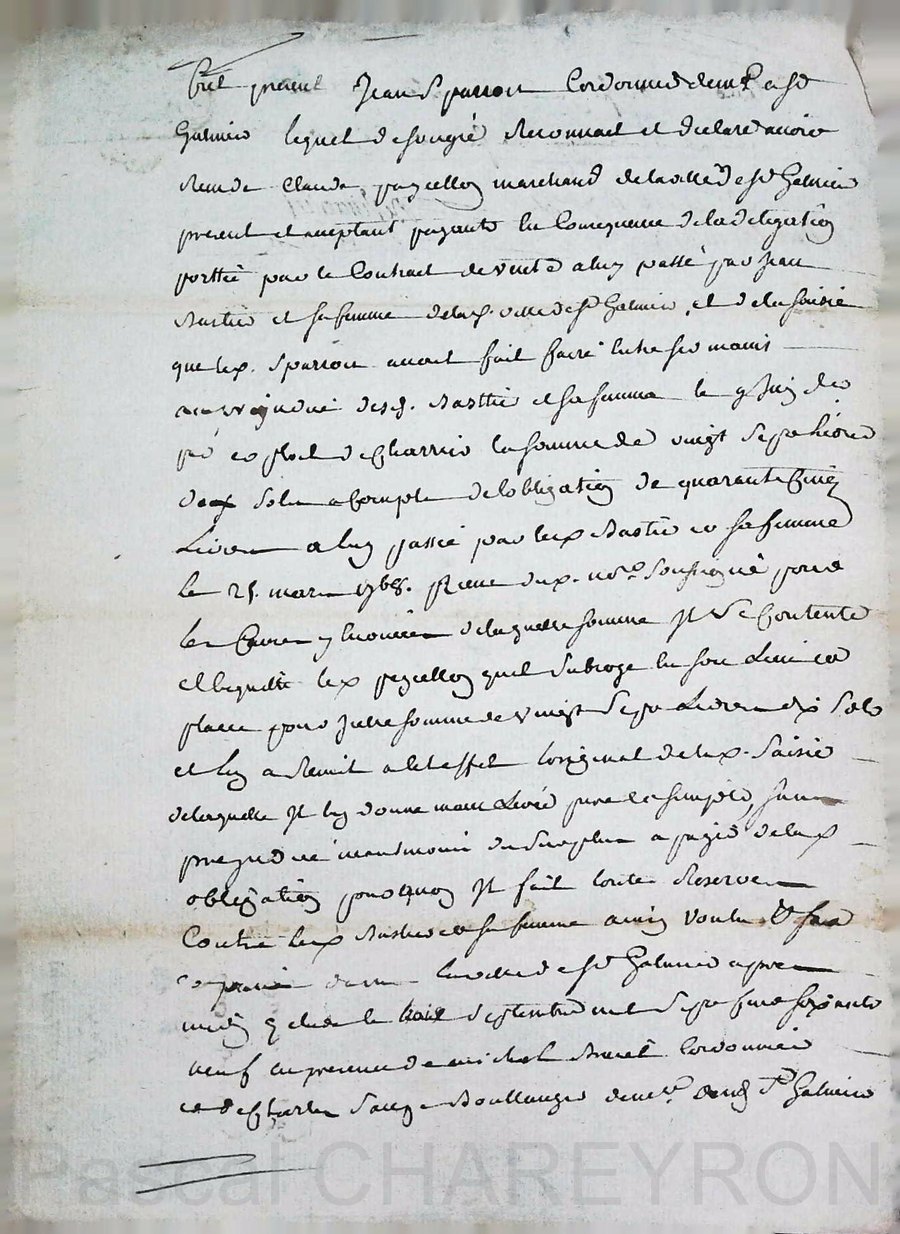 fut present Jean Sparron Cordonnier demt a St
Galmier lequel de son gré Reconnait et declare avoir
Receu de Claude payeellon marchand de la ville de St Galmier
present et acceptant payant en Consequence de la delegation
porttée par le Contract de vente a luy passé par Jean
Bastie et sa femme de lad. ville de St Galmier, et de la saisie
que led. Sparron avoit fait faire entre ses mains
au prejudice desd. Bastie et sa femme le 9 Juin
exploit de Charrin la somme de vingt sept livres
dix sols a Compte de lobligation de quarante Cinq
Livres a luy passée par led Bastie et sa femme
le 25 mars 1768. Receue dud. nore. Soussigné pour
les Causes y enoncées de laquelle somme Il Se Contente
et en quitte led payeellon quil Subroge en son Lieu et
place pour Juste somme de vingt Sept Livres dix Sols
et luy a Remit a cet effet loriginal de lad. Saisie
de laquelle Il luy donne main Levée pure et simple, sans
prejudice neantmoins du Surplus a payer de lad
obligation pour quoy Il fait toutes Reserves
Contre led Bastie et sa femme ainsi voulu & fait
et passé dans la ville de St Galmier apres
midy le trois Septembre mil Sept Cens soixante
neuf en presence de michel Cordonnier
et de Charles Sauze Boullanger demt. aud St Galmier
Pascal CHAREYRON